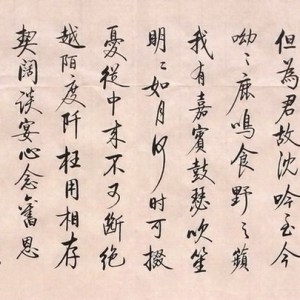 但為君故沈吟至今
呦〻鹿鳴食野之蘋
我有嘉賓鼓瑟吹笙
明〻如月何时可掇
憂從中来不可斷絕
越陌度阡枉用相存
契闊談宴心念舊恩